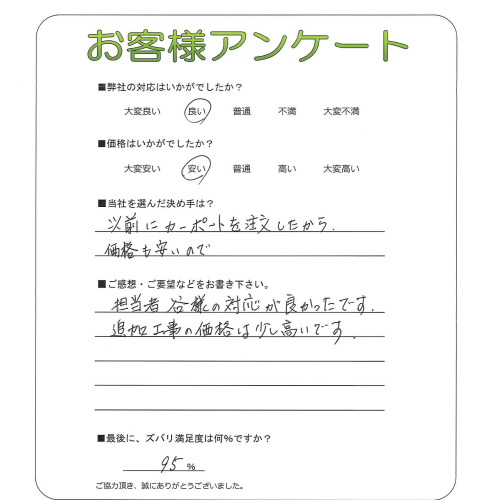 お客様アンケート
■弊社の対応はいかがでしたか？
大変良い 良い 普通 不満 大変不満
■価格はいかがでしたか？
大変安い 安い 普通 高い 大変高い
■当社を選んだ決め手は？
以前にカーポートを注文したから.
価格も安いので
■ご感想・ご要望などをお書き下さい。
担当者 谷様の対応が良かったです.
追加工事の価格は少し高いです.
■最後に、ズバリ満足度は何%ですか？
95 %
ご協力頂き、誠にありがとうございました。